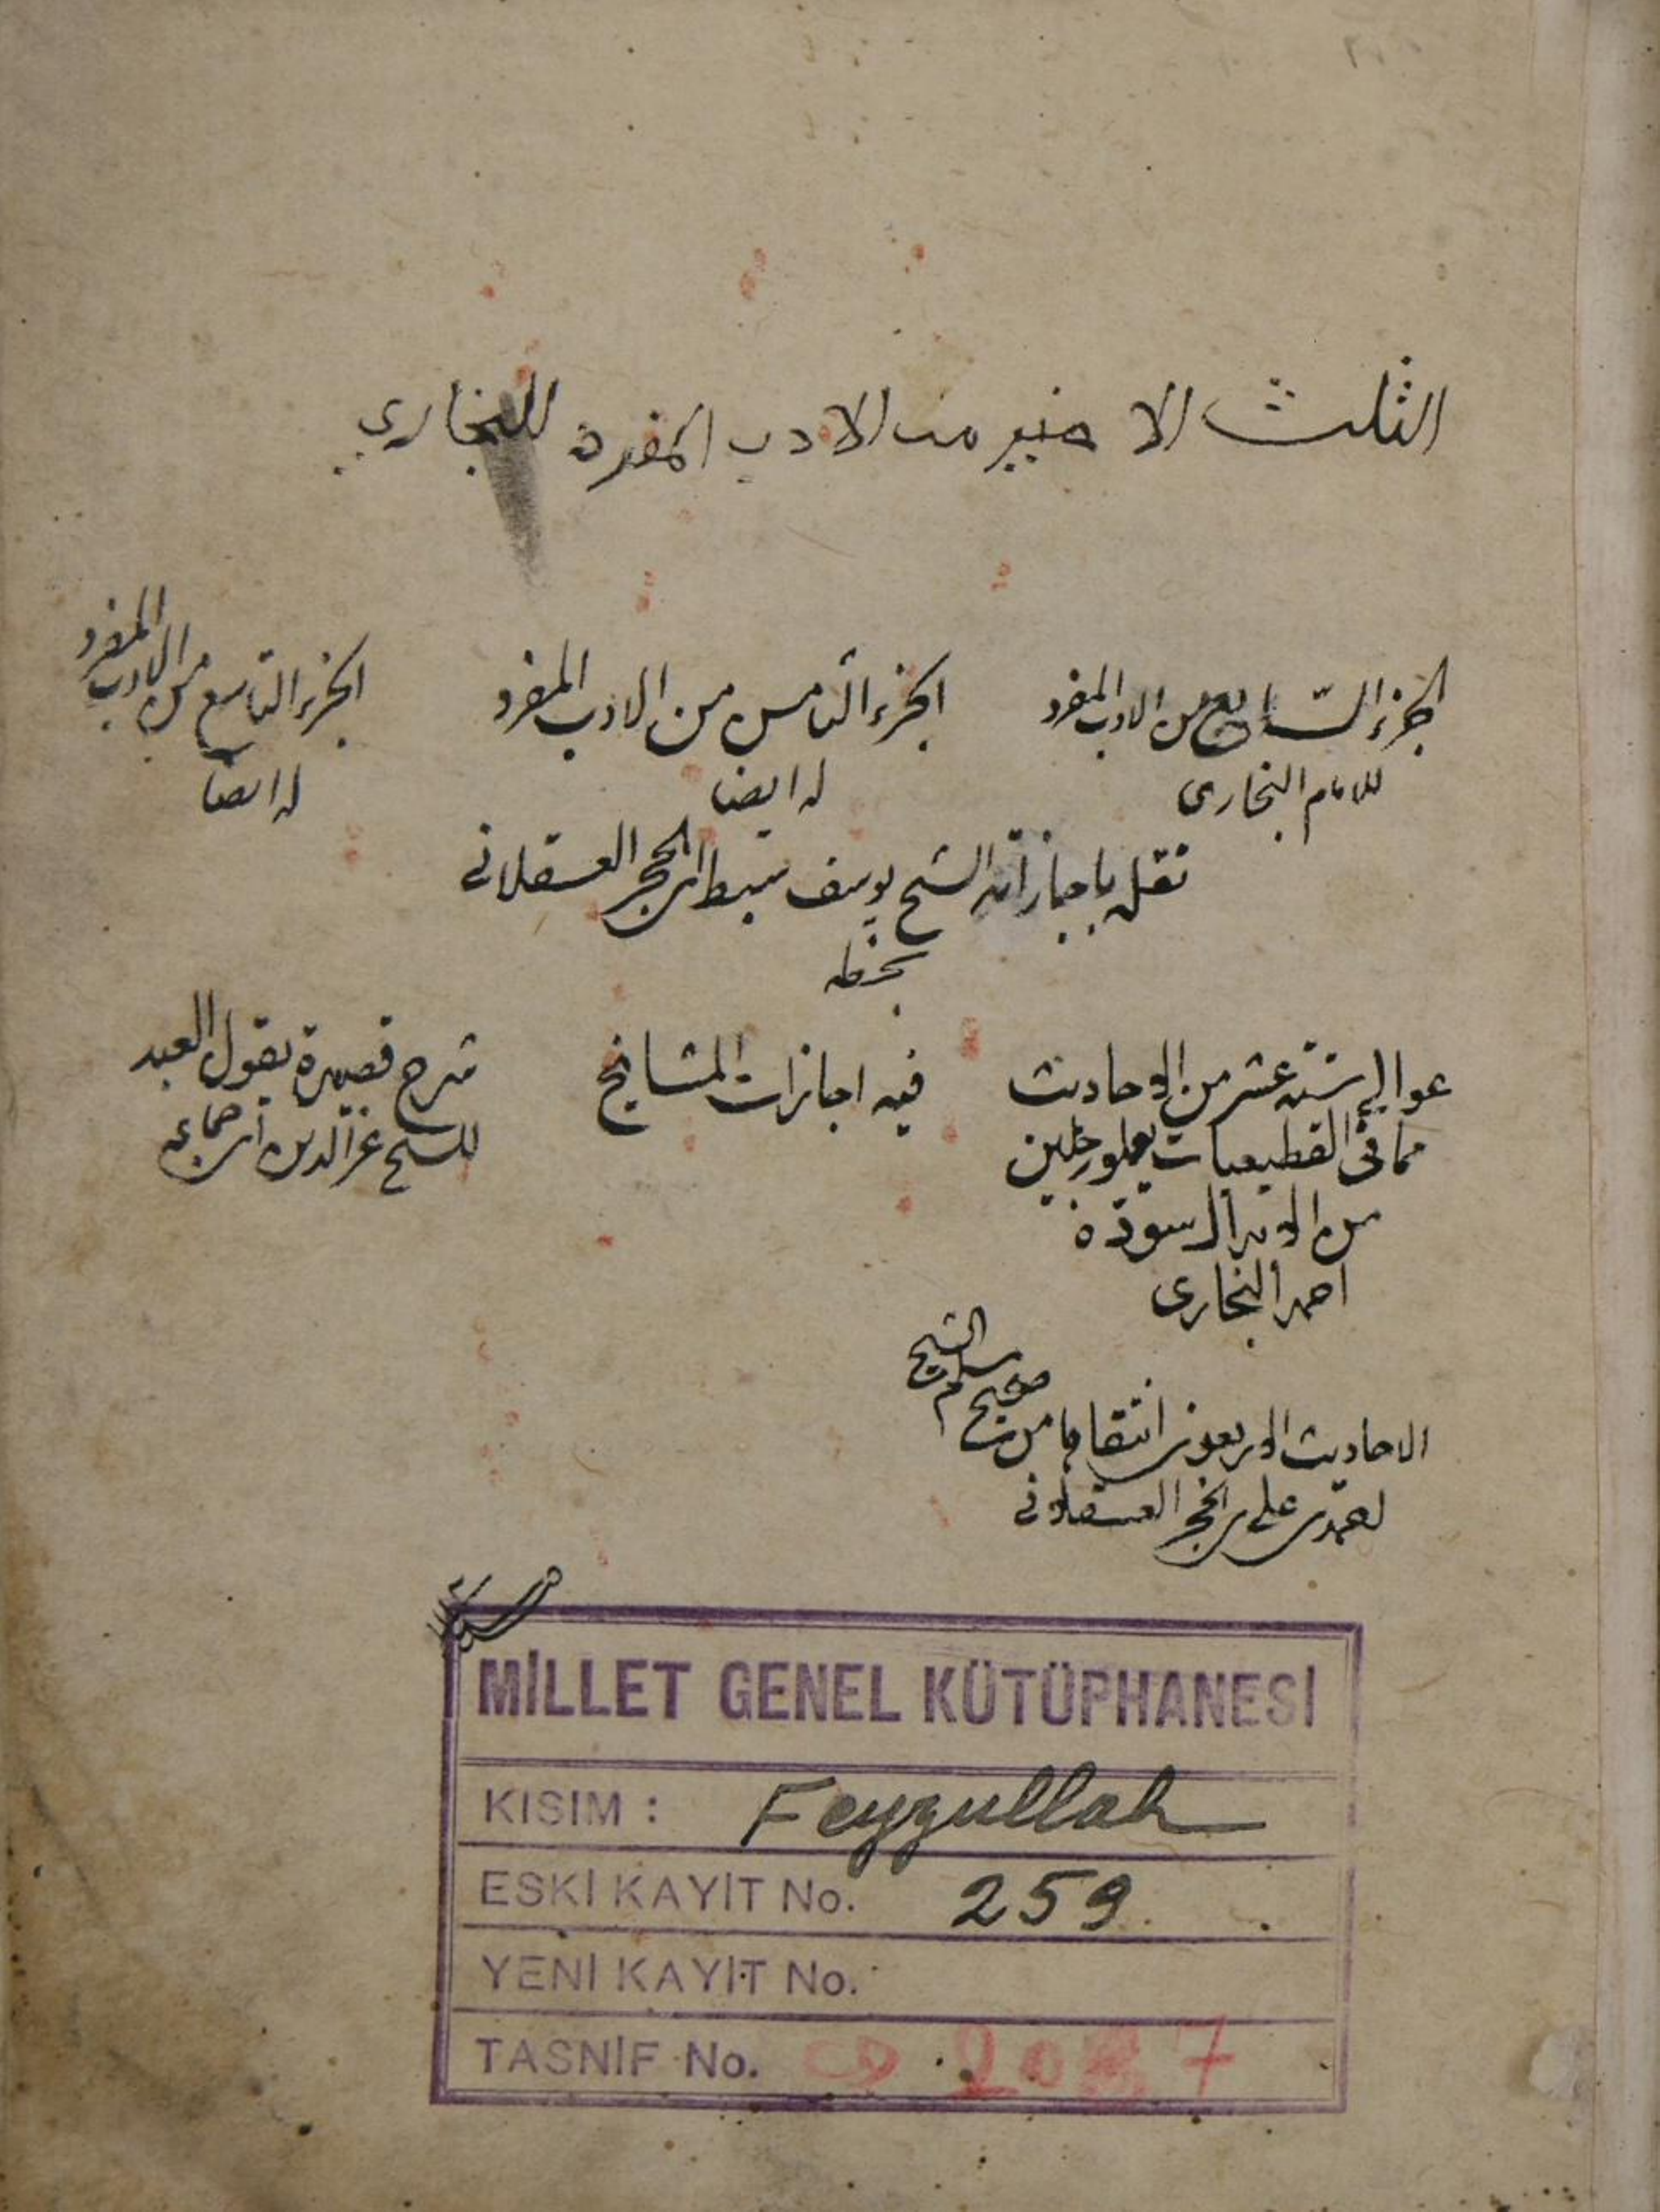 الثلث الاخير من الادب المفرد للبخاري
الجزء السابع من الادب المفرد
للامام البخارى
الجزء الثامن من الادب المفرد
له ايضا
الجزء التاسع من الادب المفرد
له ايضا
نقل باجازاته الشيخ يوسف سبط ابن حجر العسقلانى
بخطه
عوالي ستة عشر من الاحاديث
مما فى القطيعيات
من
احمد البخارى
فيه اجازات المشايخ
شرح قصيدة يقول العبد
للشيخ عز الدين ابن جماعه
الاحاديث الاربعون انتقاها من صحيح مسلم الشيخ
على بن حجر العسقلانى
MİLLET GENEL KÜTÜPHANESİ
KISIM : Feyzullah
ESKİ KAYIT No. 259
YENİ KAYIT No.
TASNİF No.